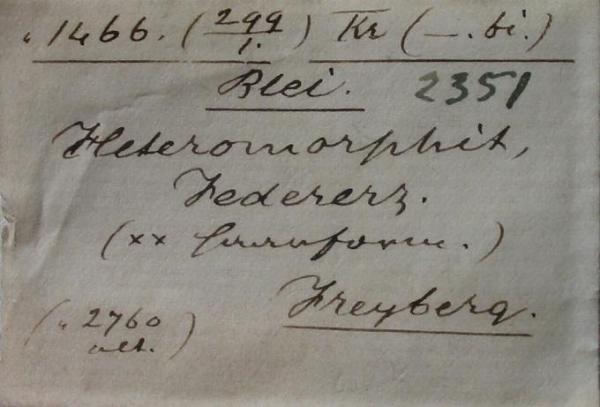 "1466. (299/1.) Kr (—. bi.)
Blei. 2351
Heteromorphit,
Federerz.
(xx haarform.)
Freyberg.
(" 2760
alt.)